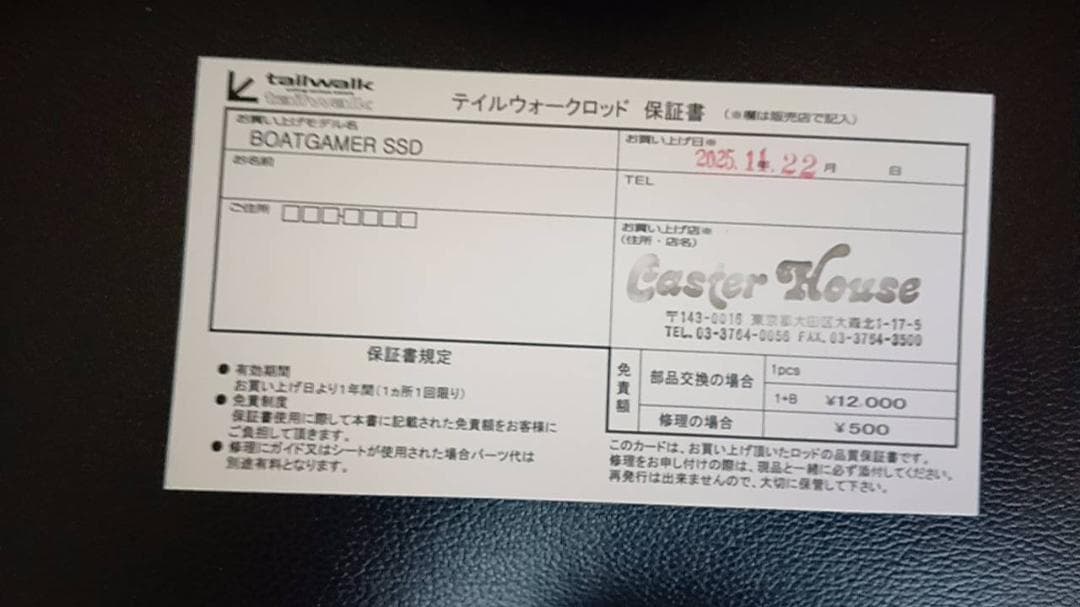 tailwalk
テイルウォークロッド 保証書 (※欄は販売店で記入)
お買い上げモデル名
BOATGAMER SSD
お買い上げ日※
2025.11.22
年 月 日
お名前
TEL
ご住所
お買い上げ店※
(住所・店名)
Caster House
〒143-0016 東京都大田区大森北1-17-5
TEL.03-3764-0056 FAX.03-3764-3500
保証書規定
● 有効期間
お買い上げ日より1年間(1ヵ所1回限り)
● 免責制度
保証書使用に際して本書に記載された免責額をお客様に
ご負担して頂きます。
● 修理にガイド又はシートが使用された場合パーツ代は
別途有料となります。
免責額
部品交換の場合
1pcs
1+B ¥12,000
修理の場合
¥500
このカードは、お買い上げ頂いたロッドの品質保証書です。
修理をお申し付けの際は、現品と一緒に必ず添付してください。
再発行は出来ませんので、大切に保管して下さい。